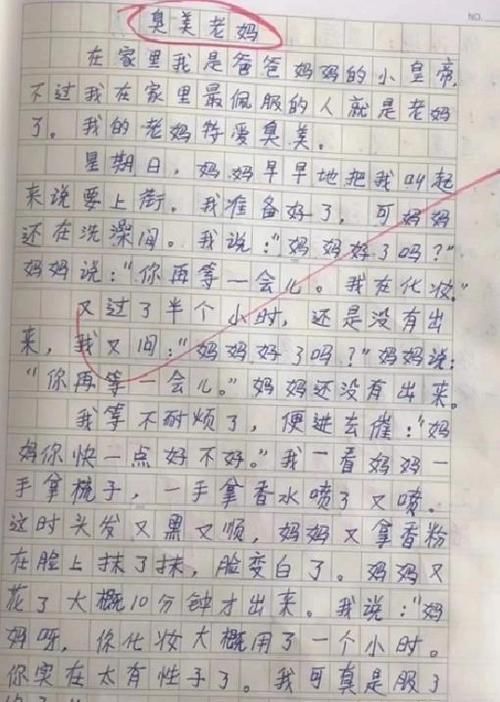 NO.
臭美老妈
在家里我是爸爸妈妈的小皇帝,
不过我在家里最佩服的人就是老妈
了。我的老妈特爱臭美。
星期日,妈妈早早地把我叫起
来说要上街。我准备好了,可妈妈
还在洗澡间。我说:"妈妈好了吗?"
妈妈说:"你再等一会儿。我在化妆."
又过了半个小时,还是没有出
来,我又问:"妈妈好了吗?"妈妈说:
"你再等一会儿。"妈妈还没有出来。
我等不耐烦了,便进去催:"妈
妈你快一点好不好。"我一看妈妈一
手拿梳子,一手拿香水喷了又喷。
这时头发又黑又顺,妈妈又拿香粉
在脸上抹了抹,脸变白了。妈妈又
花了大概10分钟才出来。我说:"妈
妈呀,你化妆大概用了一个小时。
你实在太有性子了。我可真是服了